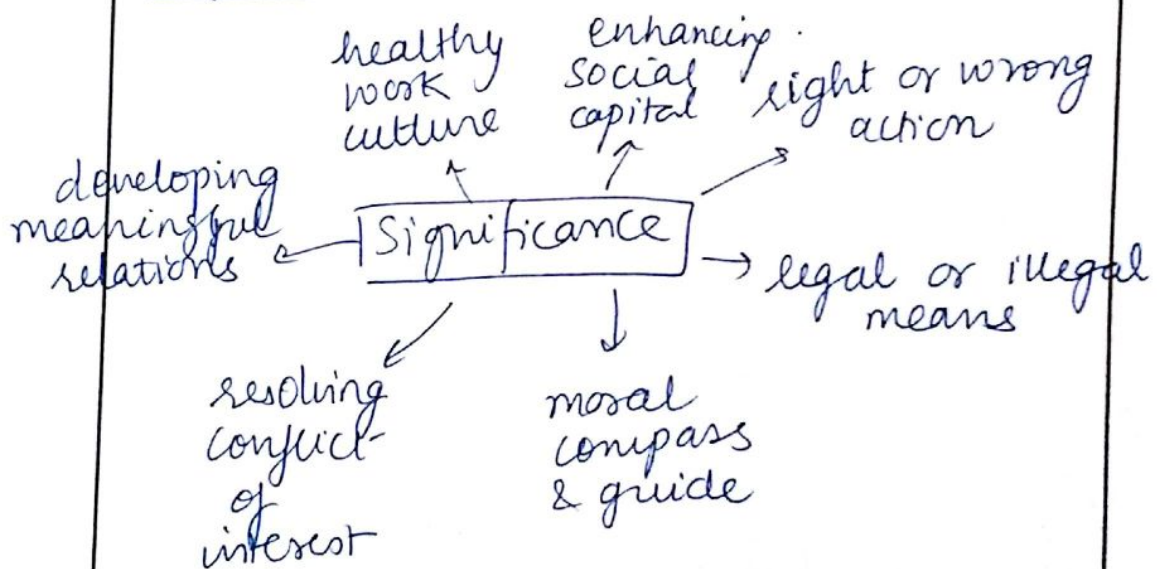 healthy
work
culture
enhancing
social
capital
right or wrong
action
developing
meaningful
relations
Significance
legal or illegal
means
resolving
conflict
of
interest
moral
compass
& guide